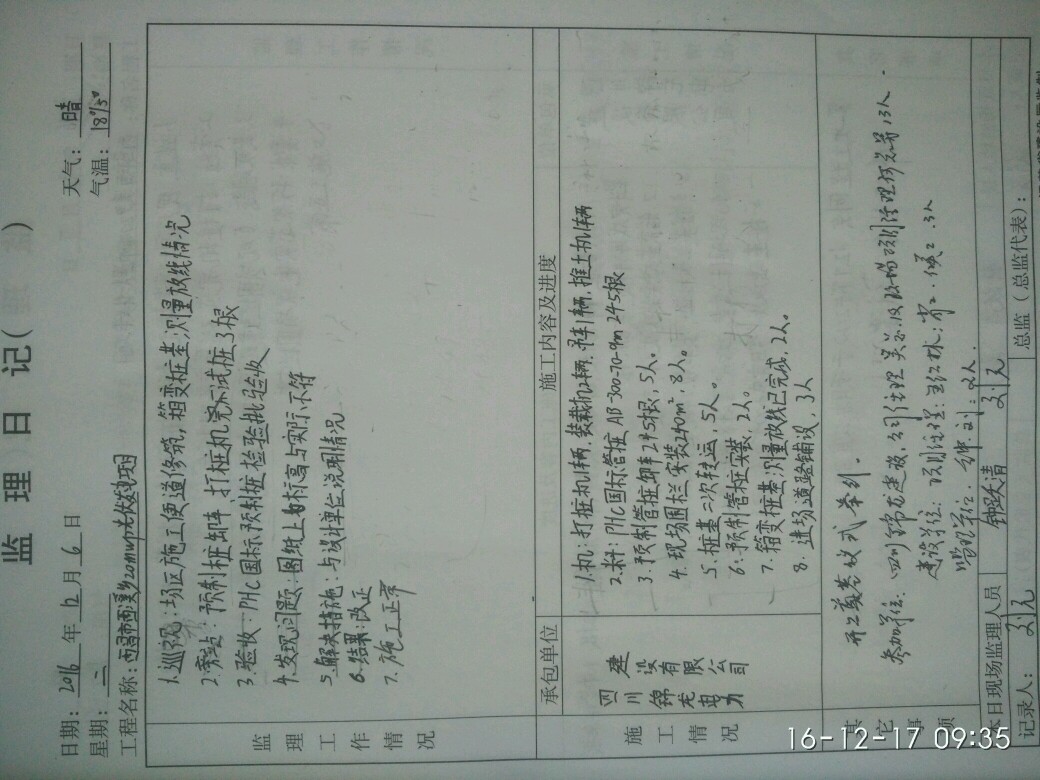 监 理 日 记 (
)
日期: 2016 年 12 月 6 日
天气: 晴
星期: 二
气温: 18°/5°
工程名称: 西昌市西溪乡20mwp光伏发电项目
监理工作情况
1. 巡视: 场区施工便道修筑, 箱变桩基测量放线情况
2. 旁站: 预制桩卸车 打桩机 试桩3根
3. 验收: PHC国标预制桩检验批验收
4. 发现问题: 图纸上的标高与实际不符
5. 解决措施: 与设计单位说明情况
6. 结果: 改正
7. 施工正常
施工情况
承包单位
施工内容及进度
四川锦龙电力建设有限公司
1. 机: 打桩机1辆, 装载机2辆, 吊车1辆, 推土机1辆
2. 料: PHC国标管桩 AB 300-70-9m 245根
3. 预制管桩卸车245根, 5人。
4. 现场围栏安装240m², 8人。
5. 桩基二次转运, 5人。
6. 预制管桩安装, 2人。
7. 箱变桩基测量放线已完成, 2人。
8. 进场道路铺设, 3人
其它事项
开工奠基仪式举行.
参加单位: 四川锦龙建设, 公司经理吴总及现场项目经理何总等, 13人.
建设单位: 项目经理: 3人
监理单位: 钟. 刘: 2人.
本日现场监理人员
钟庆清 刘元
记录人: 刘元
总监 (总监代表):
16-12-17 09:35